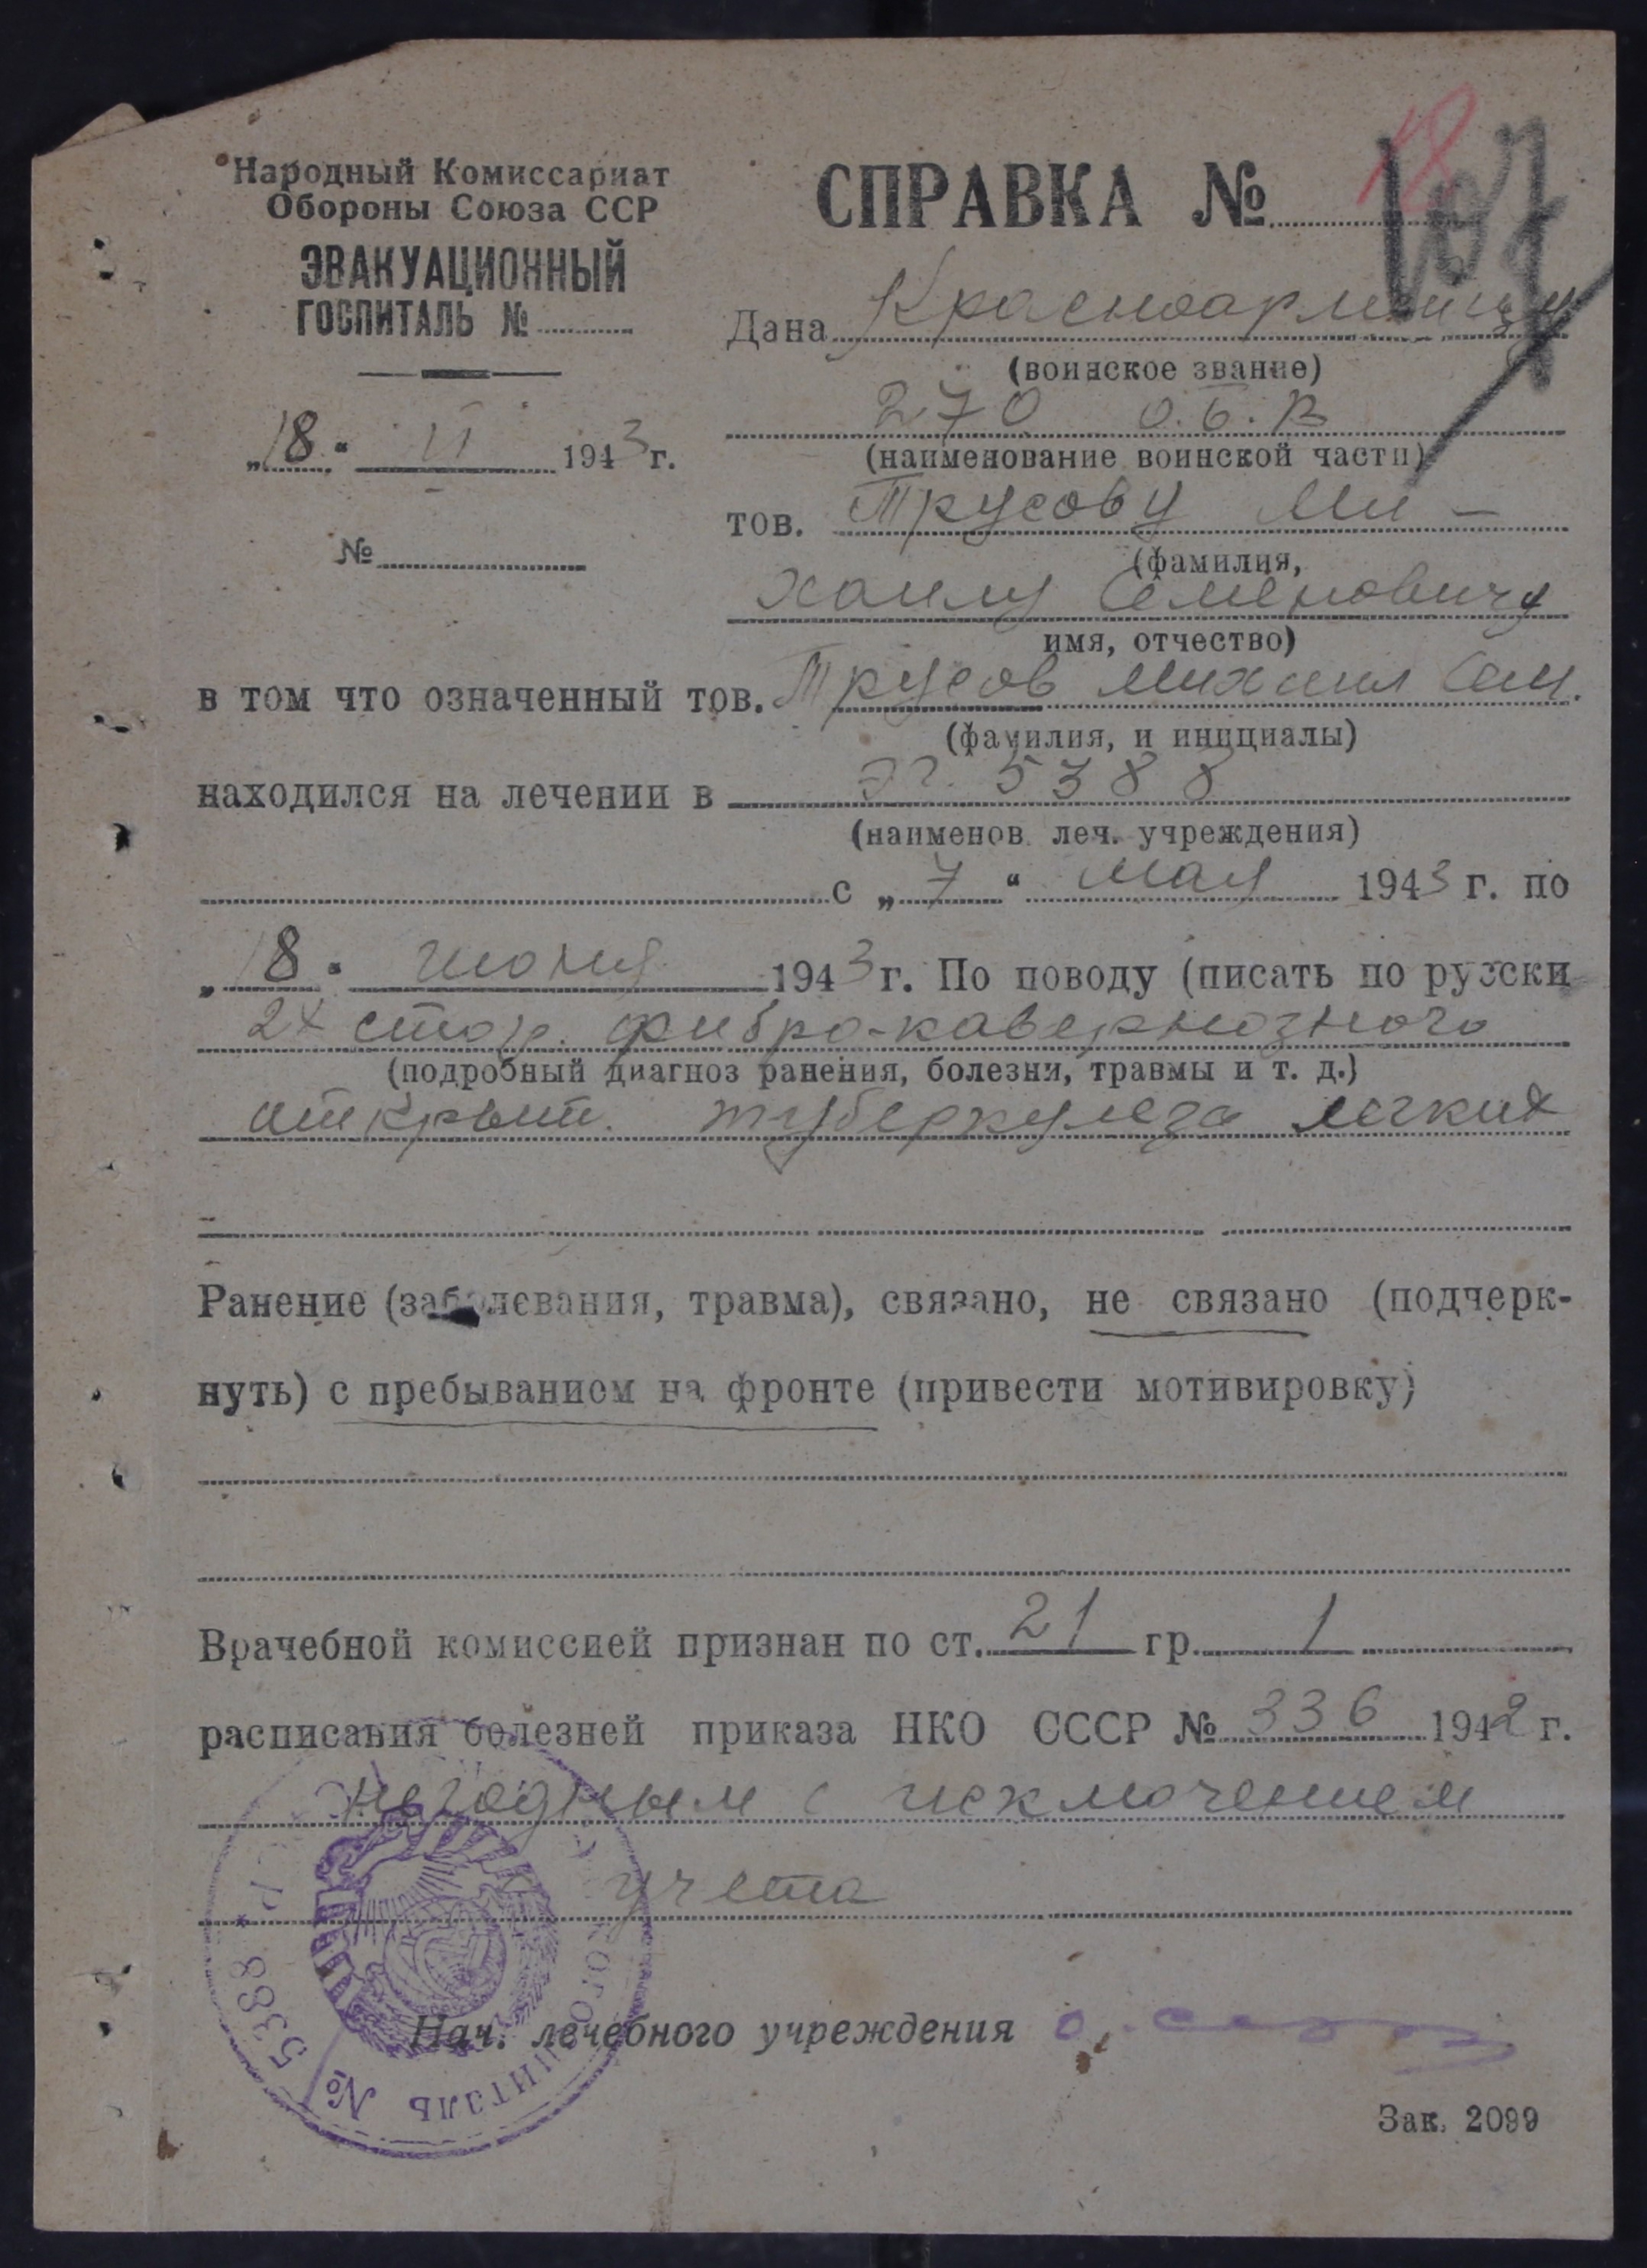 Народный Комиссариат
Обороны Союза ССР
ЭВАКУАЦИОННЫЙ
ГОСПИТАЛЬ №
„18“ VI 1943 г.
№
СПРАВКА № 18
107
Дана Красноармейцу
(воинское звание)
270 О.Б.В
(наименование воинской части)
тов. Трусову Ми-
(фамилия,
хаилу Семеновичу
имя, отчество)
в том что означенный тов. Трусов Михаил Сем.
(фамилия, и инициалы)
находился на лечении в ЭГ. 5388
(наименов. леч. учреждения)
с „7“ мая 1943 г. по
„18“ июня 1943 г. По поводу (писать по русски
2х стор. фибро-кавернозного
(подробный диагноз ранения, болезни, травмы и т. д.)
открыт. туберкулеза легких
Ранение (заболевания, травма), связано, не связано (подчерк-
нуть) с пребыванием на фронте (привести мотивировку)
Врачебной комиссией признан по ст. 21 гр. 1
расписания болезней приказа НКО СССР № 336 1942 г.
негодным с исключением
учета
Нач. лечебного учреждения
ГОСПИТАЛЬ № 5388
Зак. 2099